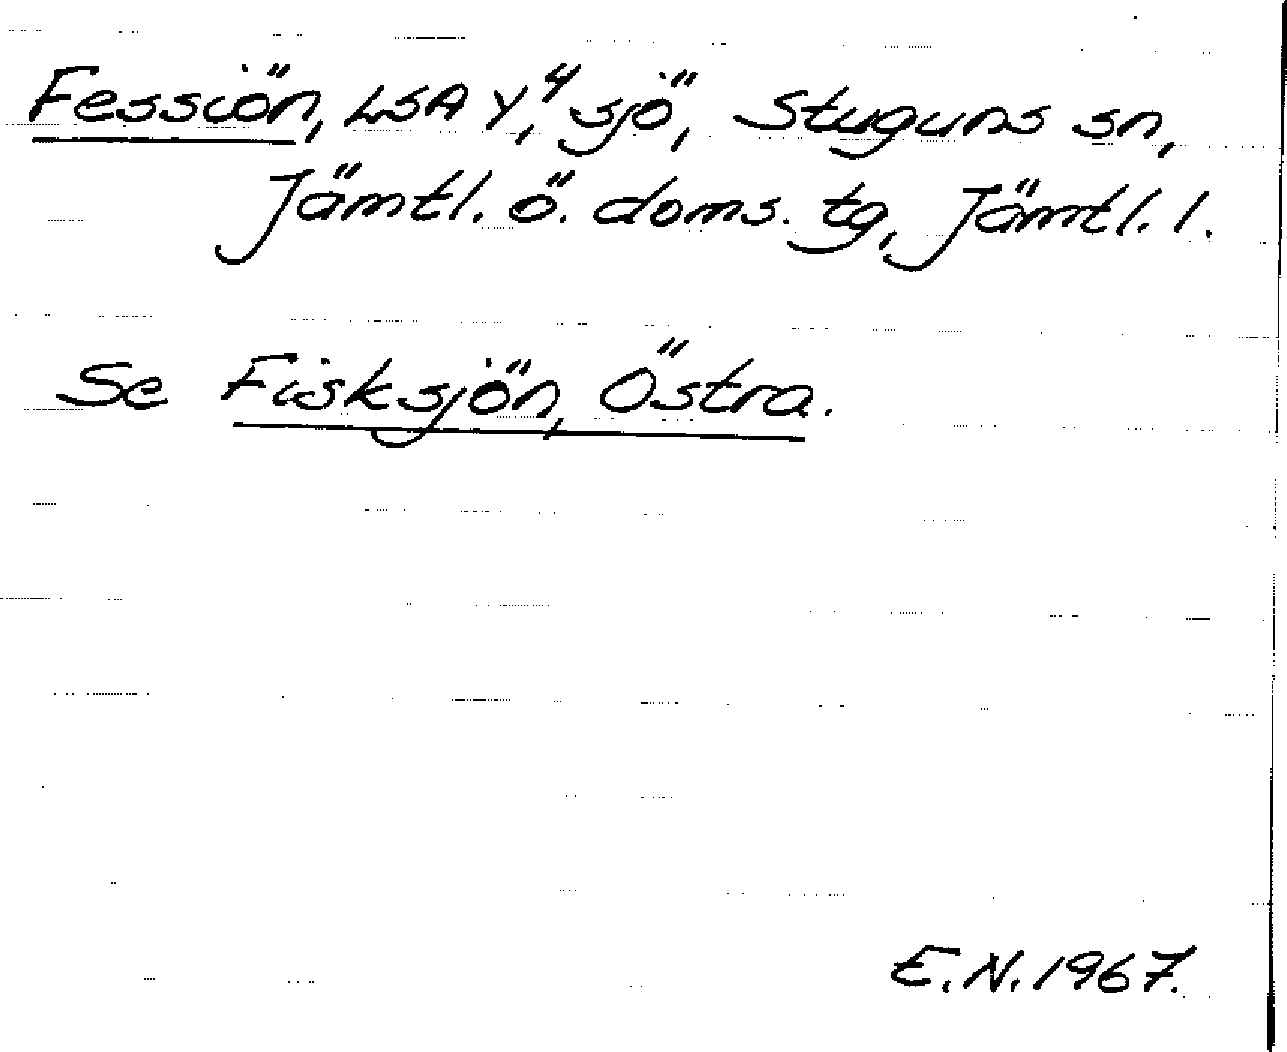 Fessiön, LSA Y,4 sjö, Stuguns sn,
Jämtl. ö. doms. tg, Jämtl. l.
Se Fisksjön, Östra.
E.N. 1967.